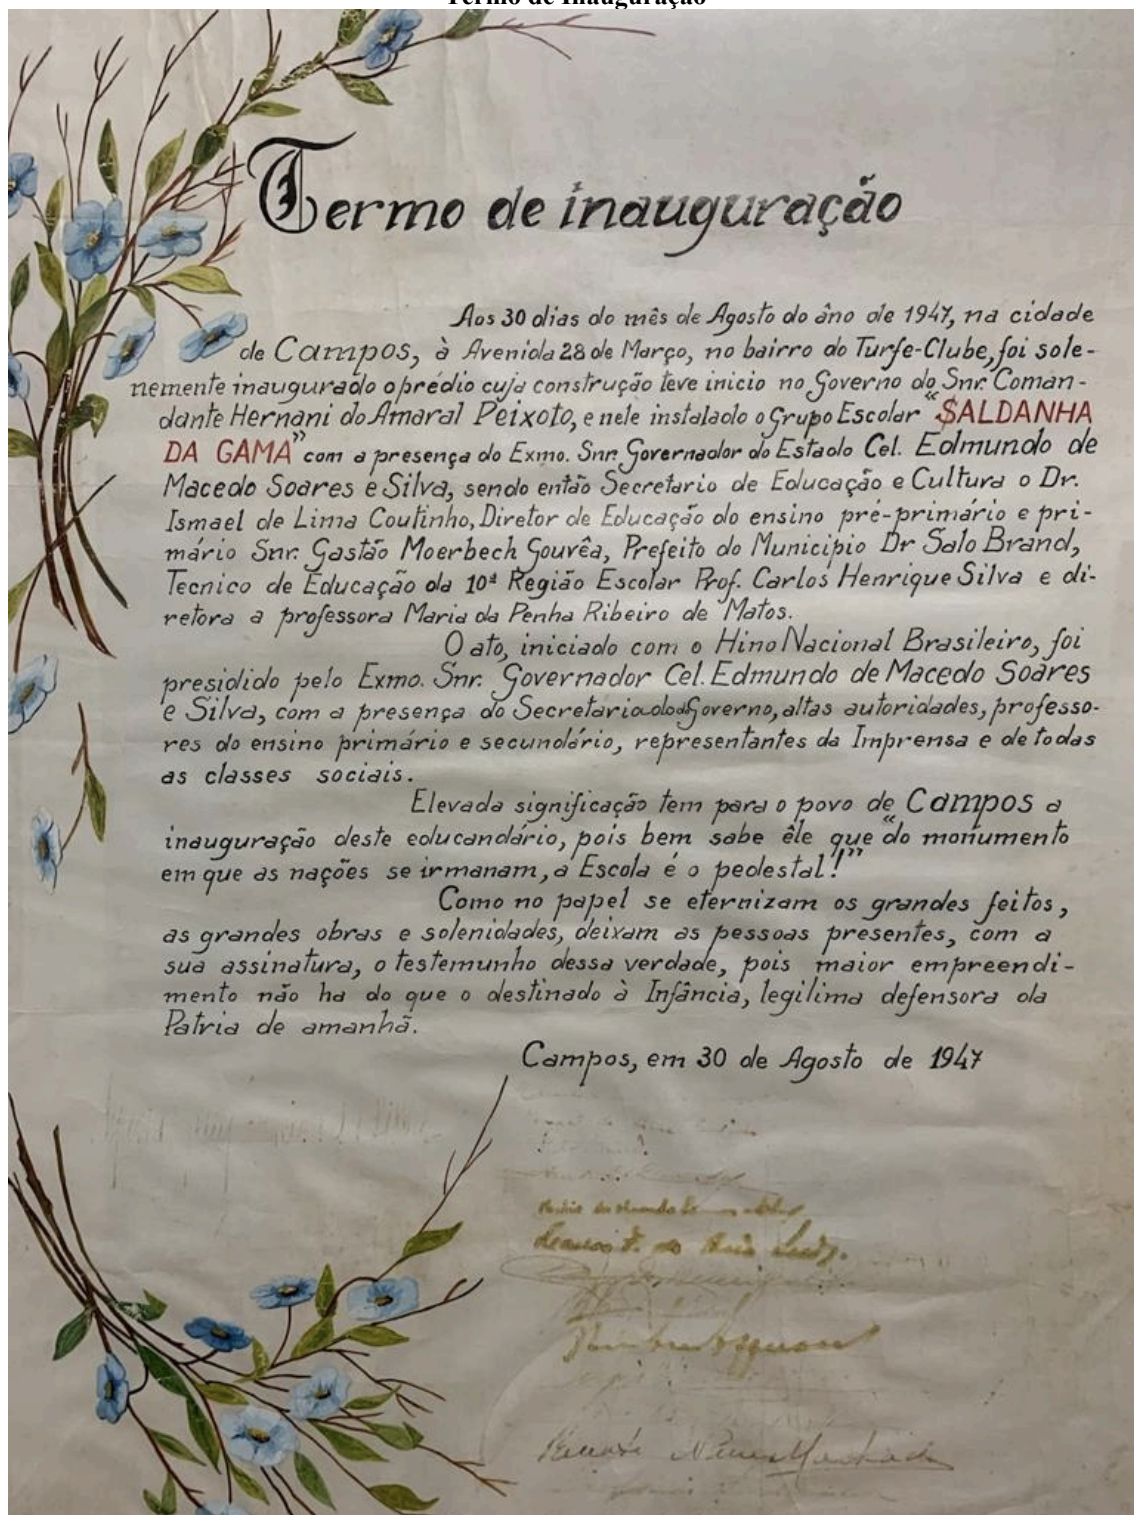 Termo de Inauguração
Termo de inauguração
Aos 30 dias do mês de Agosto do âno de 1947, na cidade
de Campos, à Avenida 28 de Março, no bairro do Turfe-Clube, foi sole-
nemente inaugurado o prédio cuja construção teve inicio no Governo do Snr. Coman-
dante Hernani do Amaral Peixoto, e nele instalado o Grupo Escolar “SALDANHA
DA GAMA” com a presença do Exmo. Snr. Governador do Estado Cel. Edmundo de
Macedo Soares e Silva, sendo então Secretario de Educação e Cultura o Dr.
Ismael de Lima Coutinho, Diretor de Educação do ensino pré-primário e pri-
mário Snr. Gastão Moerbech Gouvêa, Prefeito do Municipio Dr Salo Brand,
Tecnico de Educação da 10ª Região Escolar Prof. Carlos Henrique Silva e di-
retora a professora Maria da Penha Ribeiro de Matos.
O ato, iniciado com o Hino Nacional Brasileiro, foi
presidido pelo Exmo. Snr. Governador Cel. Edmundo de Macedo Soares
e Silva, com a presença do Secretariado do Governo, altas autoridades, professo-
res do ensino primário e secundário, representantes da Imprensa e de todas
as classes sociais.
Elevada significação tem para o povo de Campos a
inauguração deste educandário, pois bem sabe êle que “do monumento
em que as nações se irmanam, a Escola é o pedestal!”
Como no papel se eternizam os grandes feitos,
as grandes obras e solenidades, deixam as pessoas presentes, com a
sua assinatura, o testemunho dessa verdade, pois maior empreendi-
mento não ha do que o destinado à Infância, legitima defensora da
Patria de amanhã.
Campos, em 30 de Agosto de 1947